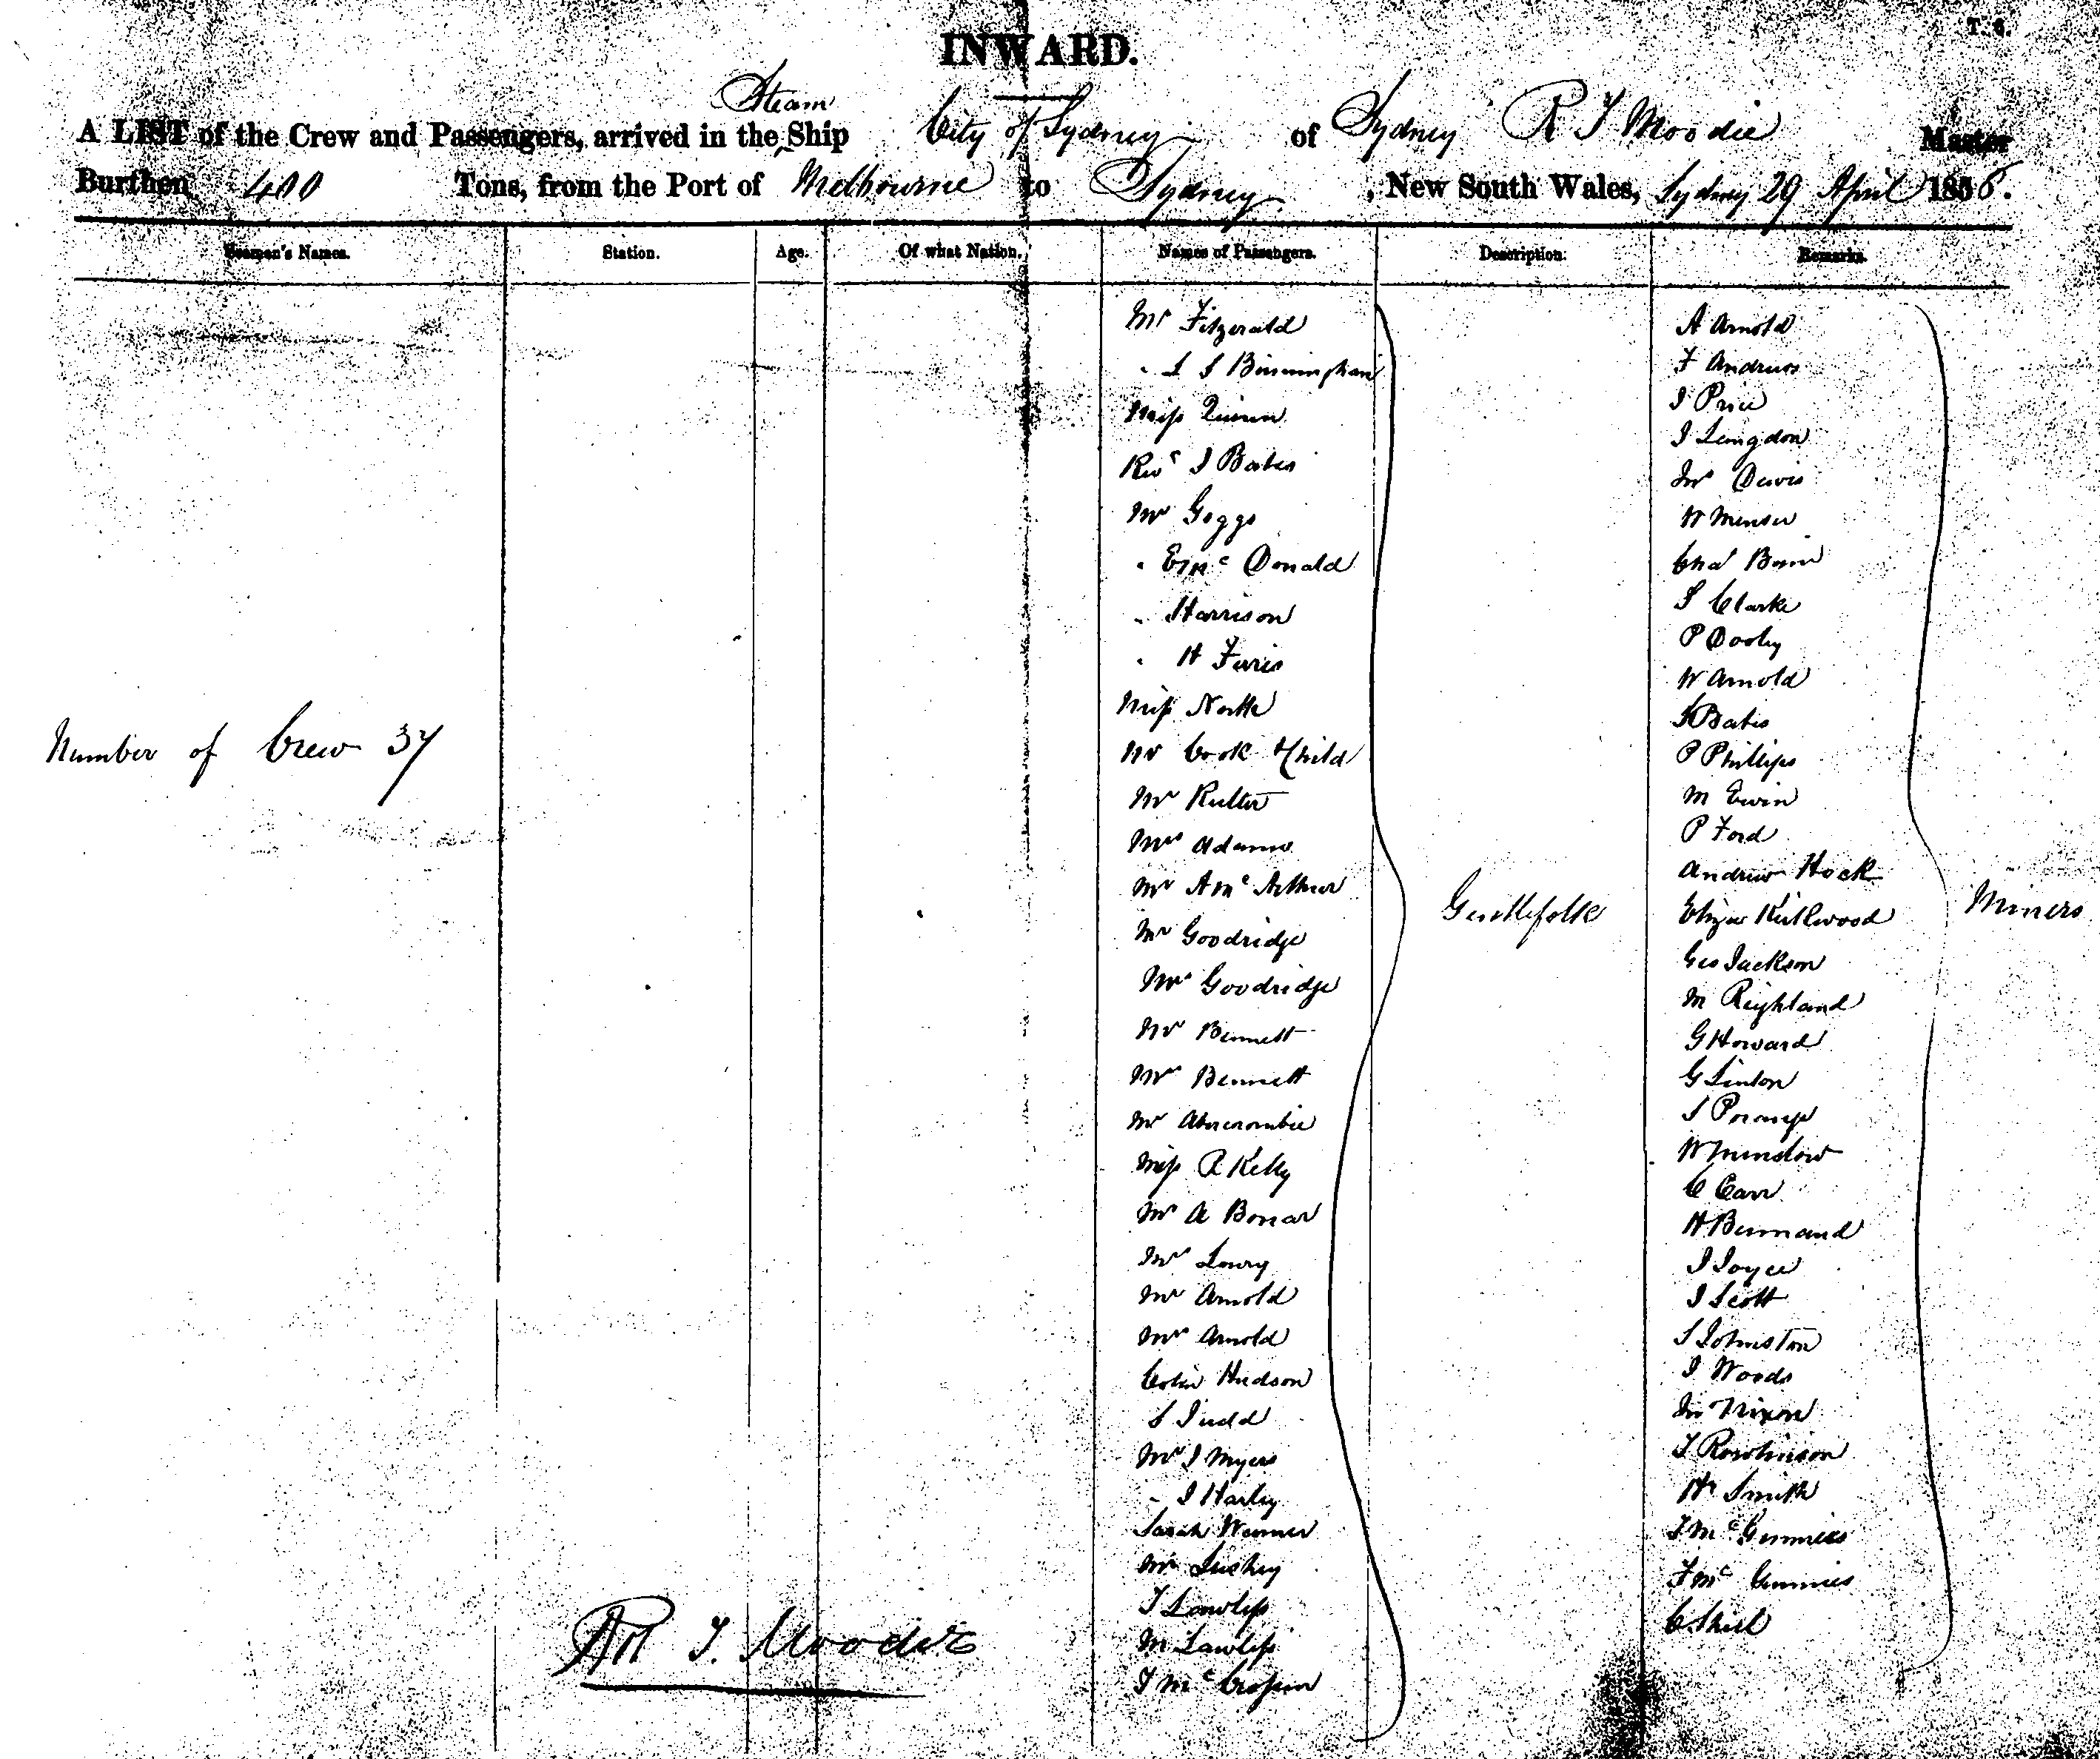 T. 6.
INWARD.
Steam
A LIST of the Crew and Passengers, arrived in the Ship City of Sydney of Sydney R T Moodie Master
Burthen 400 Tons, from the Port of Melbourne to Sydney, New South Wales, Sydney 29 April 1856.
Seamen's Names. Station. Age. Of what Nation. Names of Passengers. Description. Remarks.
Number of Crew 37
Mr Fitzgerald
" Birmingham
Miss Quinn
Revd J Bates
Mr Goggs
" E Mc Donald
" Harrison
" H
Miss North
Mr Cook & Child
Mr Rutter
Mrs Adams
Mr A Mc Arthur
Mr Goodridge
Mrs Goodridge
Mr Bennett
Mrs Bennett
Mr Abercrombie
Miss R Kelly
Mr A Bonar
Mr Lowry
Mr Arnold
Mrs Arnold
Colin Hudson
S Judd
Mr J Myers
" J Harley
Sarah Warner
Mr
T Lawless
M Lawless
J Mc
Gentlefolk
A Arnold
F Andrews
J Price
J Langdon
Jno Davis
W
Chas
S Clarke
P Dooley
W Arnold
J Bates
P Phillips
M Ewin
P Ford
Andrew Hock
Eliza Kirkwood
Geo Jackson
M Righland
G Howard
G Linton
J
W Munslow
C Carr
H Burnand
J Joyce
J Scott
S Johnston
J Woods
Jno Nixon
J Rowlinson
Hy Smith
J Mc
F Mc
C Shiel
Miners
Rt T. Moodie